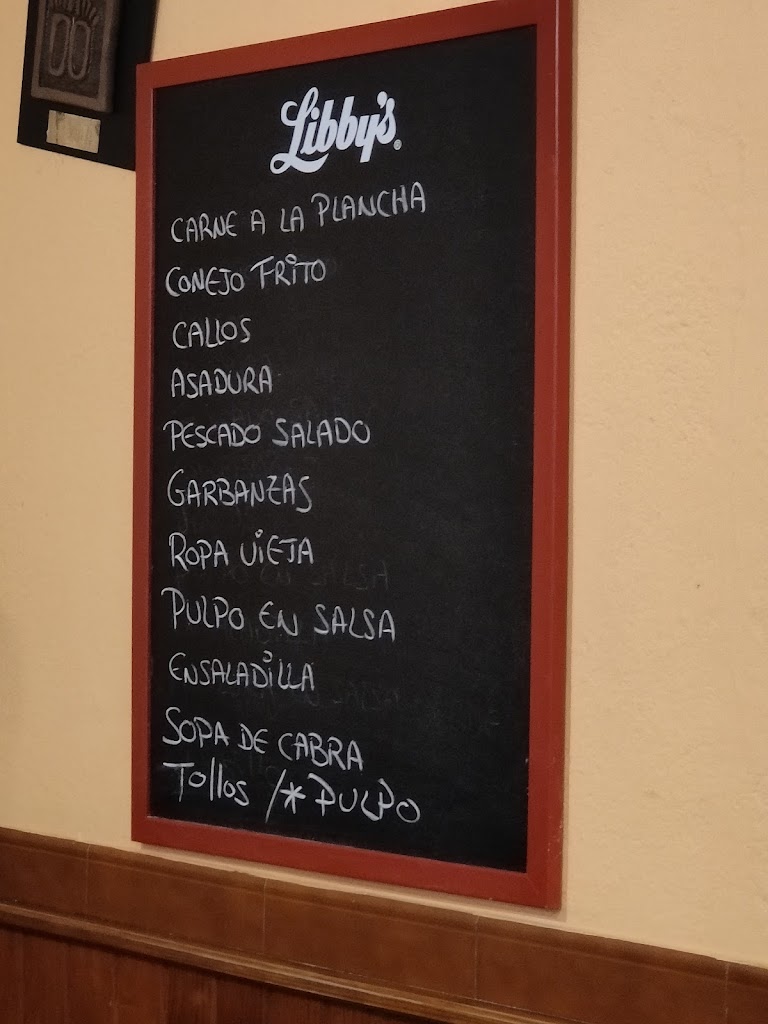 Libby's®
CARNE A LA PLANCHA
CONEJO FRITO
CALLOS
ASADURA
PESCADO SALADO
GARBANZAS
ROPA VIEJA
PULPO EN SALSA
ENSALADILLA
SOPA DE CABRA
Tollos /* PULPO